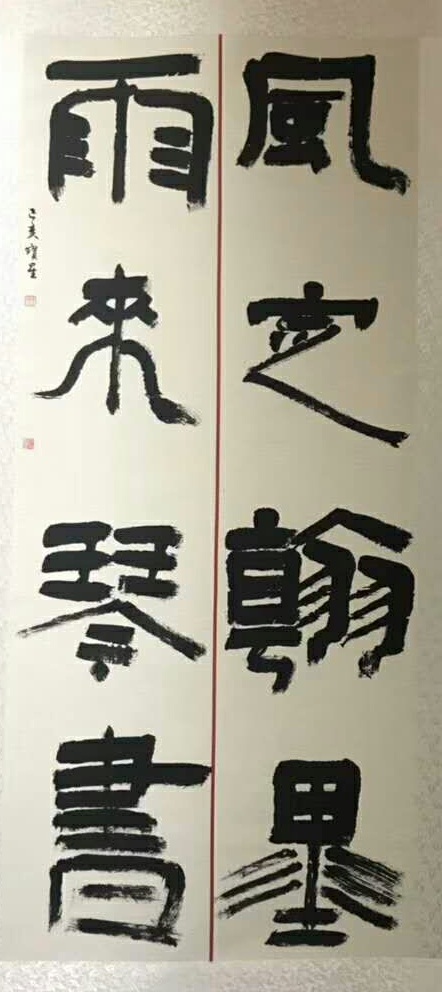 風定翰墨
雨來琴書
己亥